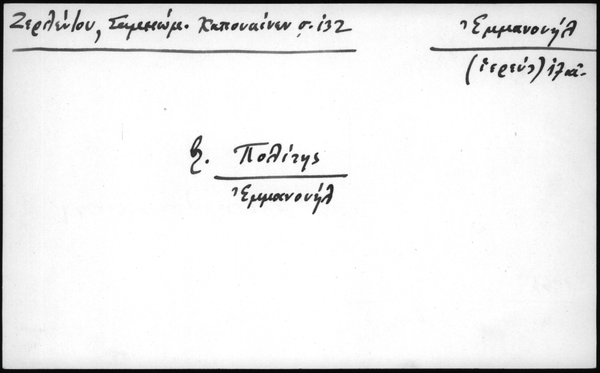 Ζερλέντου, Σημειώμ. Καπουαίνεν σ. 132
Ἐμμανουὴλ
(ἱερεύς) ιζ' αἰ.
β. Πολίτης
Ἐμμανουήλ